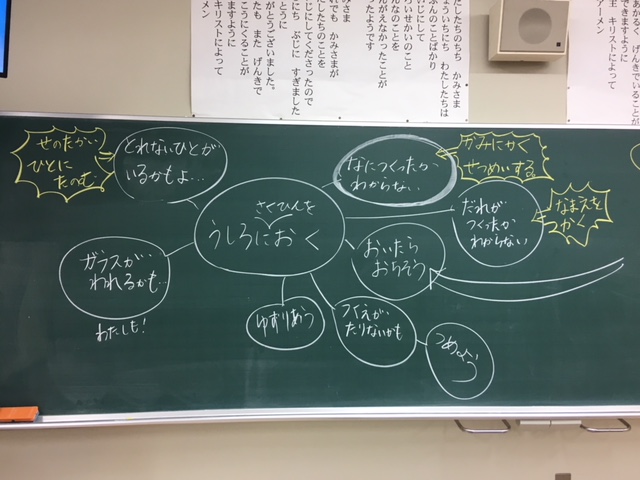 たしたちのちち かみさま
ょういちにち わたしたちは
ぶんのことばかり
いじにして
んなのことを
んがえなかったことが
ったようです
みさま
れでも かみさまが
たしたちのことを
じにしてくださったので
にち ぶじに すぎました
とうに
がとうございました。
たも また げんきで
こうにくることが
きますように
キリストによって
メン
ますように
主 キリストによって
アーメン
せのたかい
ひとに
たのむ
とれないひとが
いるかもよ…
なにつくったか
わからない
かみにかく
せつめいする
さくひんを
うしろにおく
だれが
つくったか
わからない
なまえを
かく
ガラスが、
われるかも…
わたしも!
おいたら
おちそう
ゆずりあう
つくえが、
たりないかも
つめよう